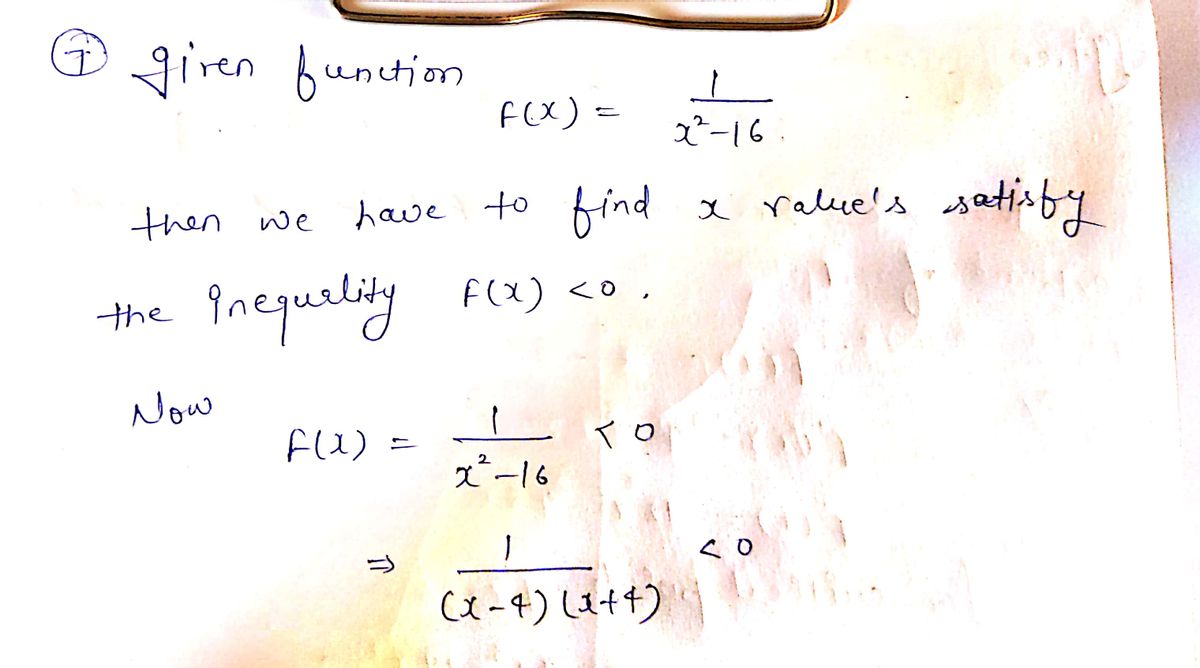 ⑦ given function
f(x) = 1/(x²-16).
then we have to find x value's satisfy
the inequality f(x) <0.
Now
f(x) = 1/(x²-16) <0
⇒ 1/((x-4)(x+4)) <0